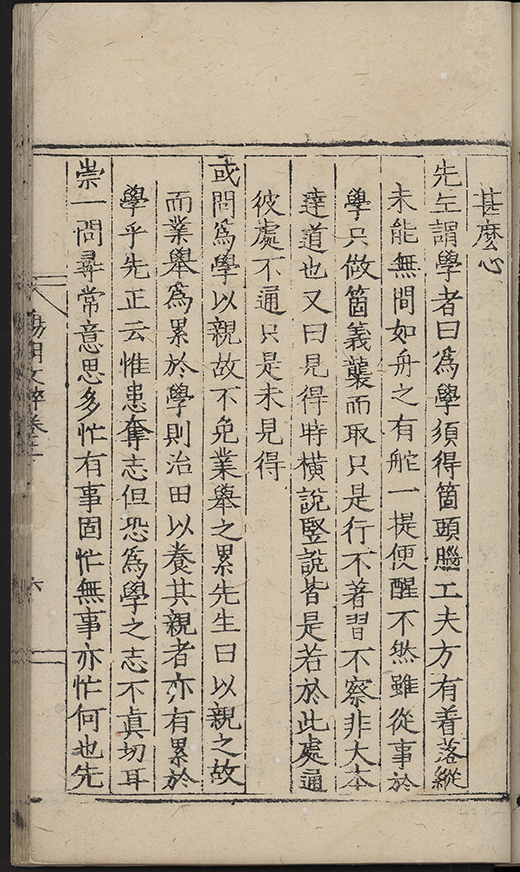 甚麽心
先生謂學者曰為學須得箇頭腦工夫方有着落縱
未能無間如舟之有舵一提便醒不然雖從事於
學只做箇義襲而取只是行不著習不察非大本
達道也又曰見得時橫說竪說皆是若於此處通
彼處不通只是未見得
或問為學以親故不免業舉之累先生曰以親之故
而業舉為累於學則治田以養其親者亦有累於
學乎先正云惟患奪志但恐為學之志不眞切耳
崇一問尋常意思多忙有事固忙無事亦忙何也先
陽明文粹卷
六